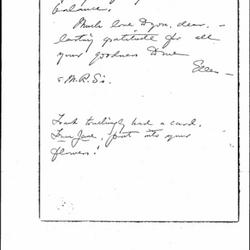 balance.
Much love to you, dear, —
lasting gratitude for all
your goodness to me
Ellen —
& M.R.S.
had a card,
from Jane, just into your
flowers!